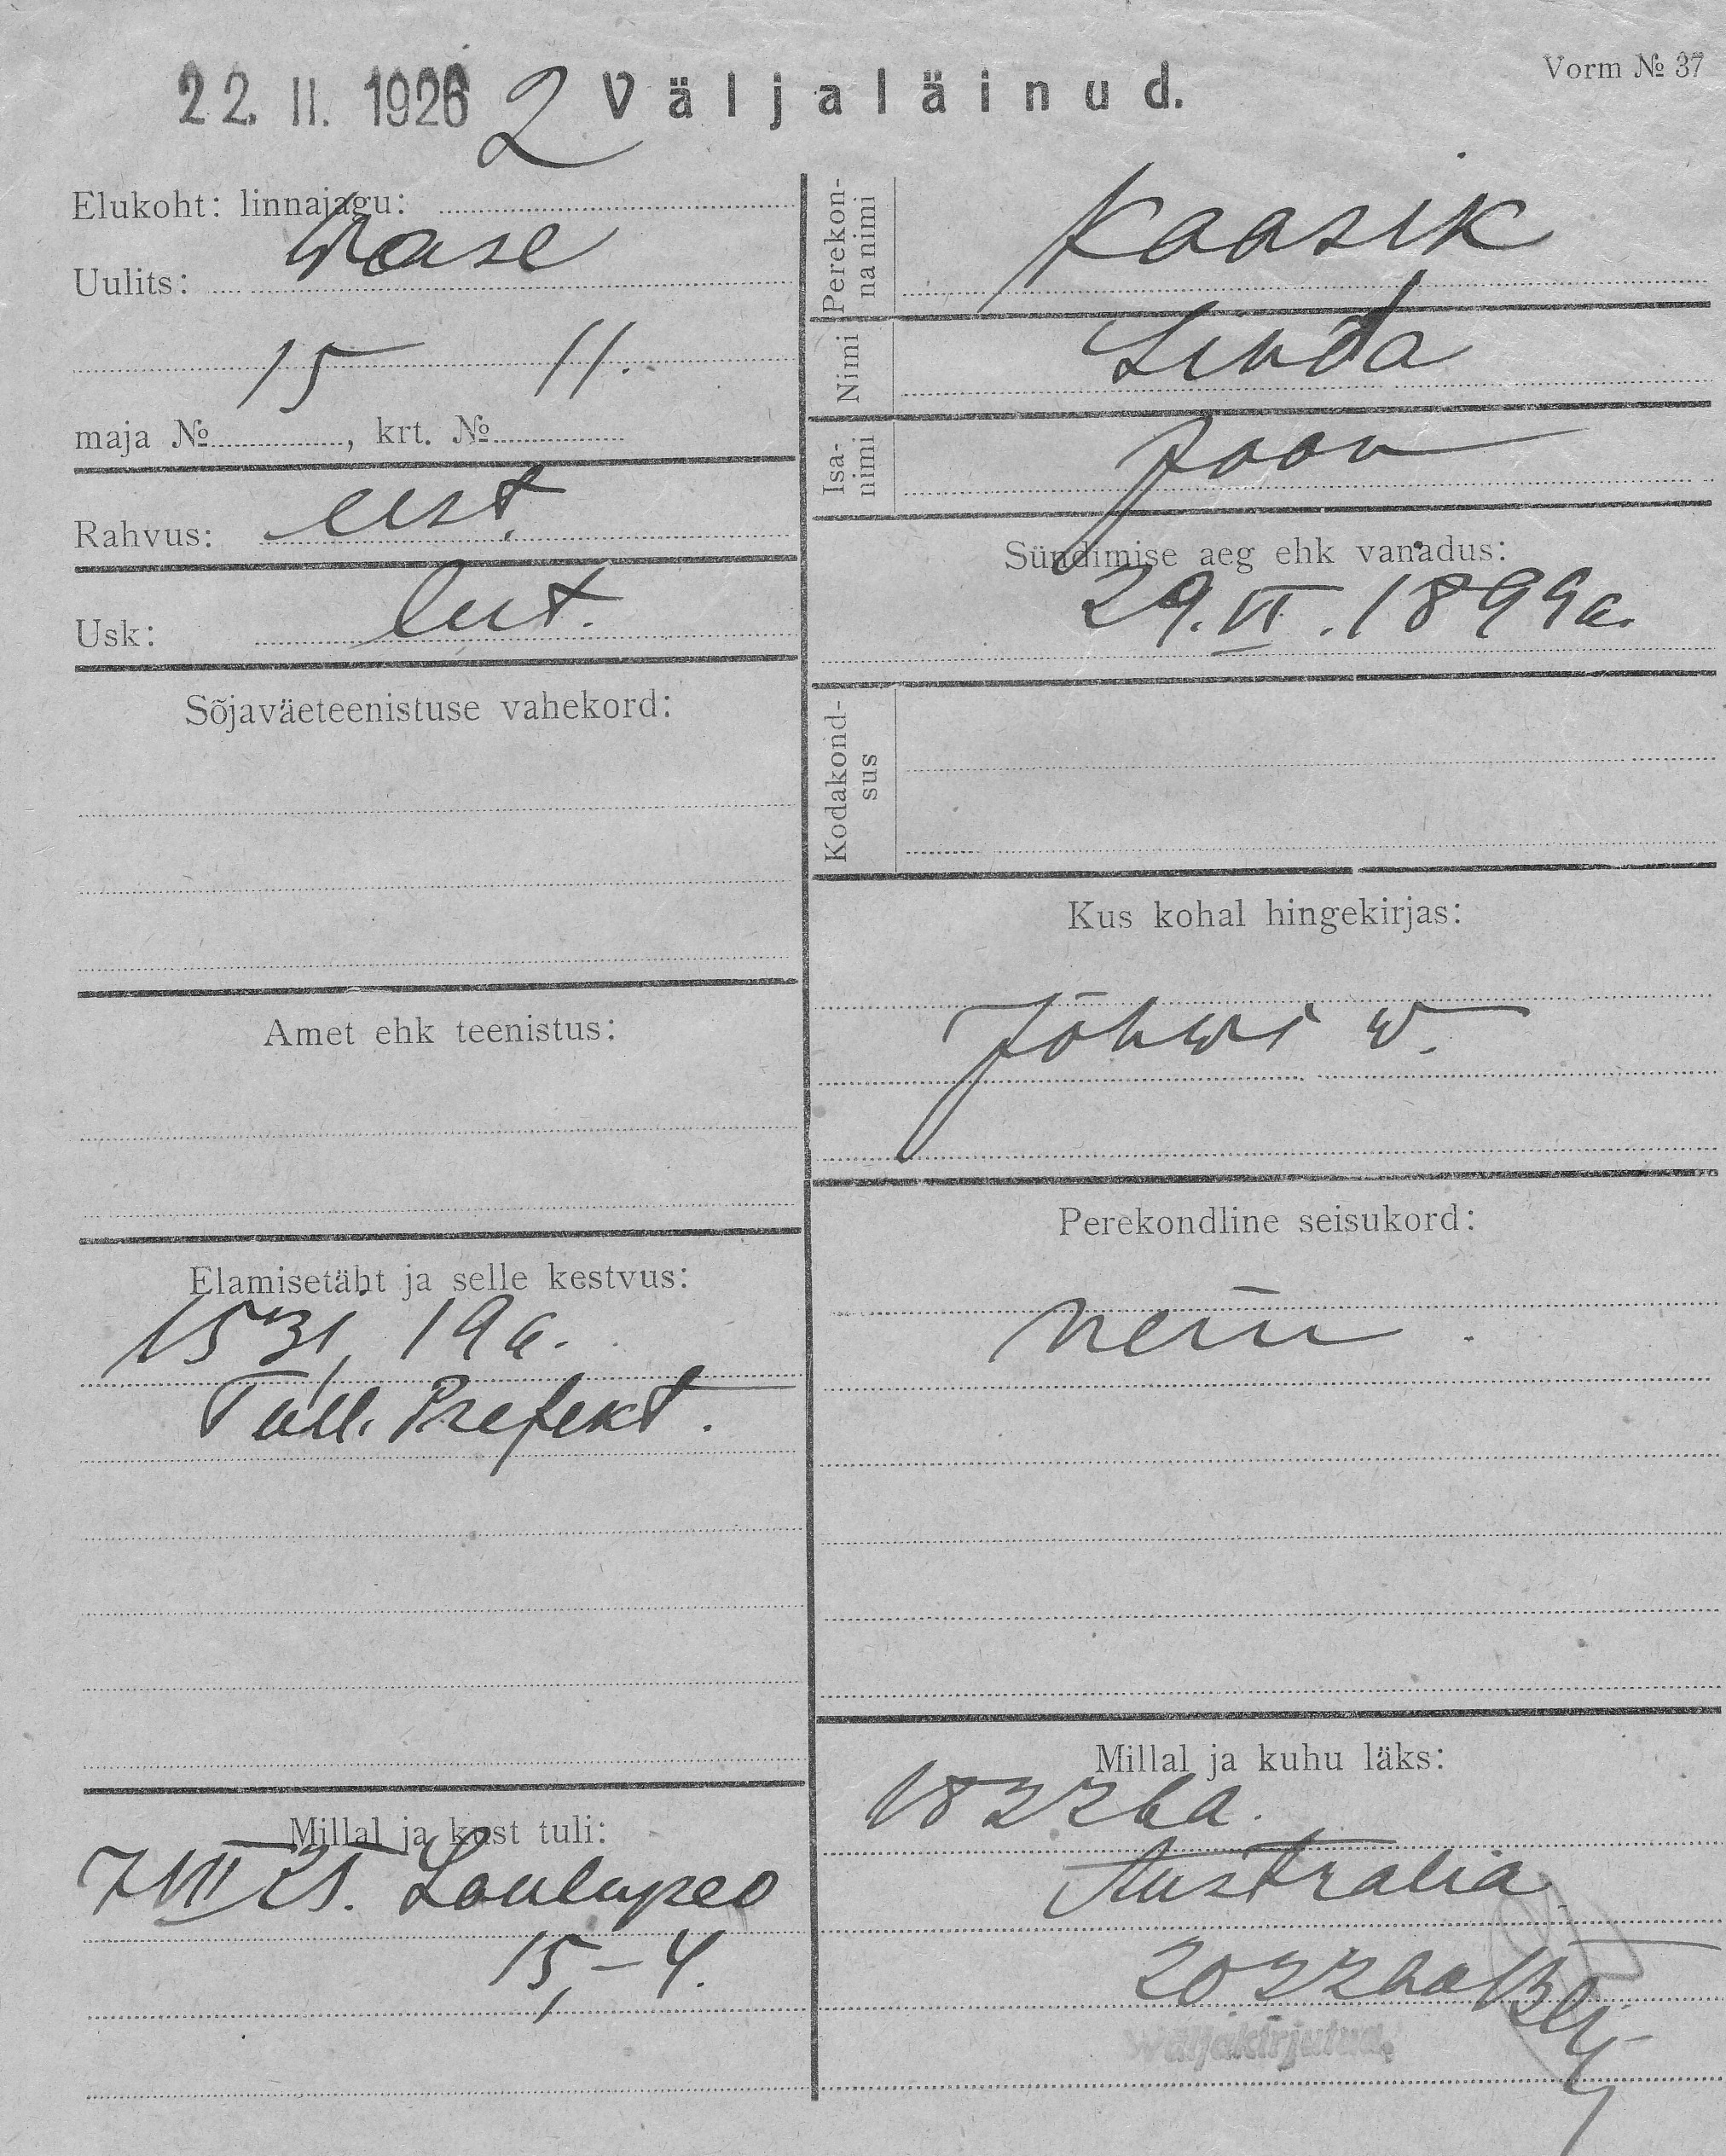 Vorm № 37
22. II. 1926 2 Väljaläinud.
Elukoht: linnajagu:
Uulits: Wase
15 11.
maja № , krt. №
Rahvus: eest.
Usk: lut.
Sõjaväeteenistuse vahekord:
Amet ehk teenistus:
Elamisetäht ja selle kestvus:
1531, 19a.
Tall. Prefekt.
Millal ja kust tuli:
7 VII 25. Laulupeo
15,-4.
Perekonnanimi Kaasik
Nimi Linda
Isanimi Jaan
Sündimise aeg ehk vanadus:
29. VI. 1899a.
Kodakondsus
Kus kohal hingekirjas:
Jõhwi w.
Perekondline seisukord:
neiu.
Millal ja kuhu läks:
Australia
Väljakirjutud.